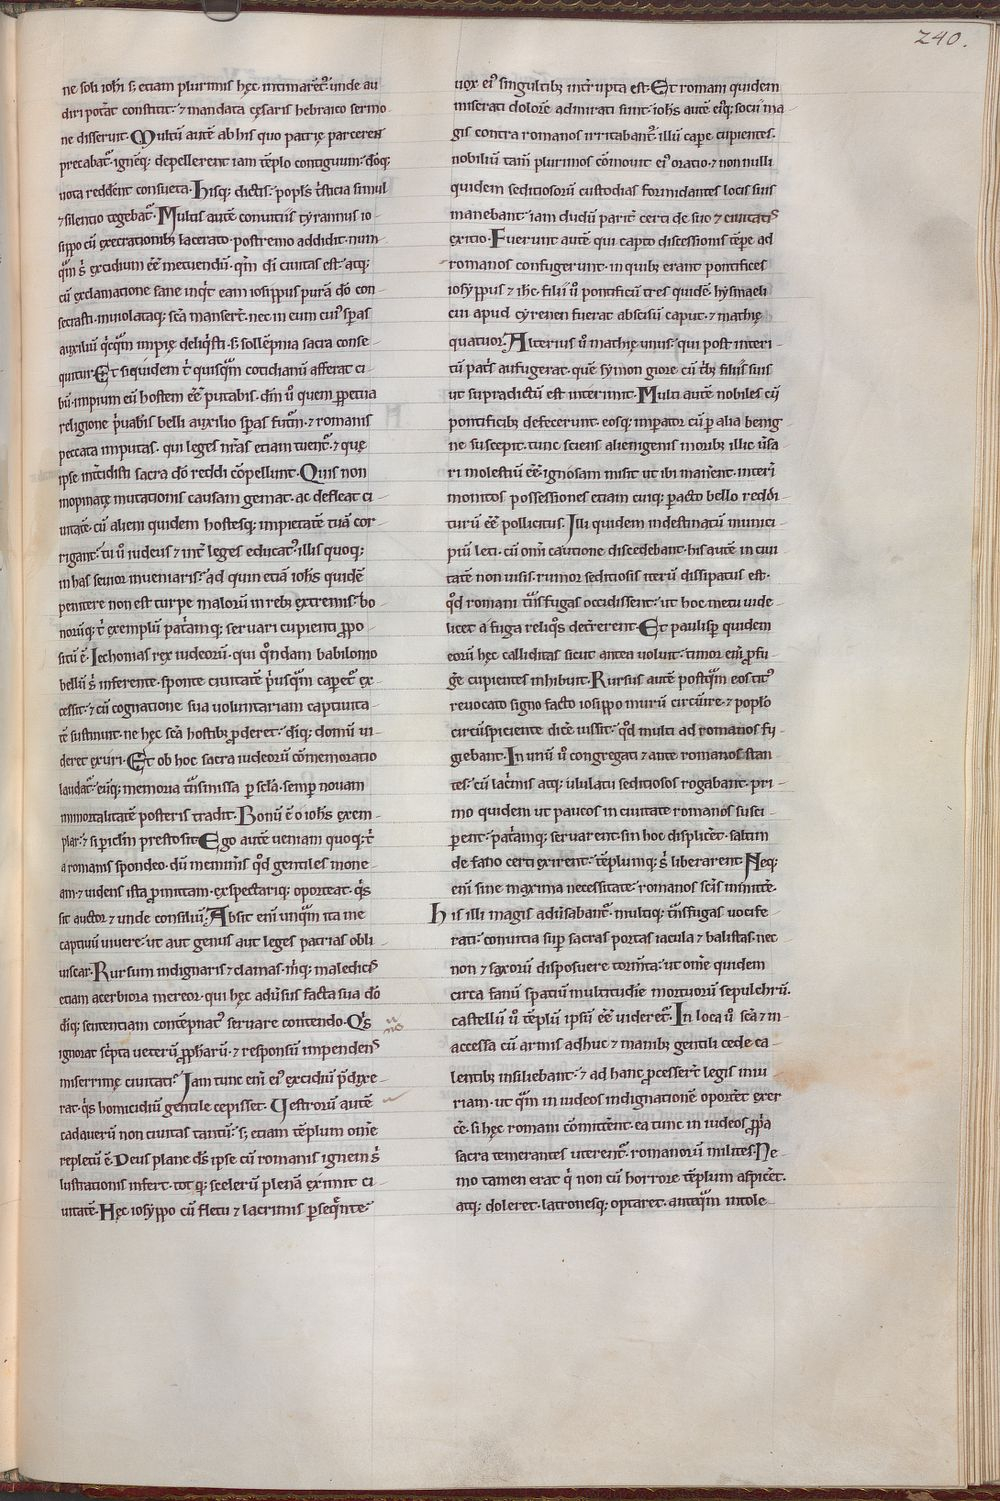 240.
ne soli ioh̄i s; etiam plurimis hęc intimarēt᷑. unde au
diri potat̄ constitit. ⁊ mandata cęsaris hebraico sermo
ne disseruit. Multū autē ab his quo patrię parceren
precabat᷑. ignēq; depellerent iam tēplo contiguum. dōq;
uota reddent̄ consueta. Hisq; dictis. popl̓s tʼsticia simul
⁊ silentio tegebat᷑. Multis autē conuitiis tyrannus io
sippo cū execrationib; lacerato. postremo addidit. num
q̄m s̓ excidium eē̄ metuendū. qm̄ di ciuitas est. atq;
cū exclamatione sane inqt̓ eam iosippus purā dō con
secrasti. inuiolataq; sc̄a manserē. nec in eum cui᷒ sp̄as
auxiliū qc̓q̄m impię deliq̓sti. s; sollēpnia sacra conse
quitur. Et siquidem t̓ quisq̄m cotidianū afferat ci
bū. impium eū hostem eē̄ putabis. dm̄ ū quem ꝑpetua
religione p̓uabis̄ belli auxilio sp̄as futm̄. ⁊ romanis
peccata imputas. qui leges nr̄as etiam tuent᷑. ⁊ quę
ipse intc̓idisti sacra dō reddi cōpellunt. Quis non
inopinatę mutationis causam gemat. ac defleat ci
uitatē. cū alieni quidem hostesq; impietatē tuā cor
rigant. tu ū iudeus ⁊ int̄ leges educat᷒. illis quoq;
in has seuior inueniaris. ad quin etiā ioh̄s quidē
penitere non est turpe malorū in reb; extremis. bo
norūq; t̓ exemplū pat̄amq; seruari cupienti ꝓpo
sitū ē. Iechonias rex iudeorū. qui qͦndam babilonio
bellū s̓ inferente. sponte ciuitatē p̓usq̄m capet᷑ ex
cessit. ⁊ cū cognatione sua uoluntariam captiuita
tē sustinuit. ne hęc sc̄a hostib; ꝓderet. diq; domū ui
deret exuri. Et ob hoc sacra iudeorū cōmemoratio
laudat᷑. eiq; memoria tn̄smissa ꝑ sc̄la. semꝑ nouam
immortalitatē posteris tradit. Bonū ē o ioh̄s exem
plar. ⁊ si piclm̄ presto sit. Ego autē ueniam quoq; t̓
a romanis spondeo. dū memin̄is qd̄ gentiles mone
am. ⁊ uidens ista ꝓmittam. exspectariq; oporteat. q̓s
sit auctor ⁊ unde consiliū. Absit eni᷑ unq̄m ita me
captiuū uiuere. ut aut genus aut leges patrias obli
uiscar. Rursum indignaris ⁊ clamas. m̓q; maledicis
etiam acerbiora mereor. qui hęc adūsus facta sua dō
diq; sententiam contēpnat᷒ seruare contendo. Q̓s
ignorat sc̓pta ueterū ꝓpharū. ⁊ responsū impendens
miserrimę ciuitati. Iam tunc eni᷑ ei᷒ excidiū p̄dixe
rat. q̓s homicidiū gentile cepisset. Uestrorū autē
cadauerū non ciuitas tantū. s; etiam tēplum om̄e
repletū ē. Deus plane ds̄ ipse cū romanis ignem s̓
lustrationis infert. totq; scelerū plenā exinit ci
uitatē. Hęc iosyppo cū fletu ⁊ lacrimis ꝑseq̄nte.
uox ei᷒ singultib; intr̄upta est. Et romani quidem
miserati dolorē admirati sunt. ioh̄s autē eiq; socii ma
gis contra romanos irritabant᷑. illū cape̓ cupientes.
nobiliū tam̄ plurimos cōmouit ei᷒ oratio. ⁊ non nulli
quidem seditiosorū custodias formidantes locis suis
manebant. iam dudū parit̄ certi de suo ⁊ ciuitatis
exitio. Fuerunt autē qui capto discessionis tēpe ad
romanos confugerunt. in quib; erant pontifices
iosyppus ⁊ ihc̄. filii ū pontificū tres quidē. hysmaeli
cui apud cyrenen fuerat abscisū caput. ⁊ mathię
quatuor. Alterius ū mathię unus. qui post interi
tū pat̓s aufugerat. quē symon giore cū tb̓; filiis suis
ut supradictū est interimit. Multi autē nobiles cū
pontificib; defecerunt. eosq; impator cū ꝑ alia benig
ne suscepit. tunc sciens alienigenis morib; illic ūsa
ri molestū eē̄. ignosam misit ut ibi manēent. interi᷑
monitos possessiones etiam cuiq; ꝑacto bello reddi
turū eē̄ pollicitus. Illi quidem indestinatū munici
piū leti. cū om̄i cautione discedebant. his autē in ciui
tatē non uisis. rumor seditiosis iterū dissipatus est.
qd̄ romani tn̄sfugas occidissent. ut hoc metu uide
licet a fuga reliq̓s det̄rerent. Et paulisꝑ quidem
eorū hęc calliditas sicut antea uoluit. timor eni᷑ ꝓfu
ge̓ cupientes inhibuit. Rursus autē postq̄m eos tit᷒
reuocato signo facto iosippo murū circūire. ⁊ poplō
circūspiciente dice̓ iussit. qd̄ multi ad romanos fu
giebant. In unū ū congregati ⁊ ante romanos stan
tes. cū lac̓mis atq; ululatu seditiosos rogabant. pri
mo quidem ut paucos in ciuitate romanos susci
perent. pat̄amq; seruarent. sin hoc displicet̄. saltim
de fano certi exirent. tēplumq; s̓ liberarent. Neq;
eni᷑ sine maxima necessitate. romanos sc̄is inmitte̓.
His illi magis adūsabant᷑. multiq; tn̄sfugas uocife
rati. conuitia suꝑ sacras portas iacula ⁊ balistas. nec
non ⁊ saxorū disposuere torm̄ta. ut om̄e quidem
circa fanū spatiū multitudīe mortuorū sepulchrū.
castellū ū tēplū ipsū eē̄ uideret᷑. In loca ū sc̄a ⁊ in
accessa cū armis adhuc ⁊ manib; gentili cede ca
lentib; insiliebant. ⁊ ad hanc ꝓcesserē̄ legis iniu
riam. ut q̄m in iudeos indignationē oportet̄ exer
ce̓. si hęc romani cōmitte̓nt. ea tunc in iudeos ꝓp̓a
sacra temerantes uterent᷑. romanorū milites. Ne
mo tamen erat q̓ non cū horrore tēplum aspiceet̄.
atq; doleret. latronesq; optaret. anteq̄m intole